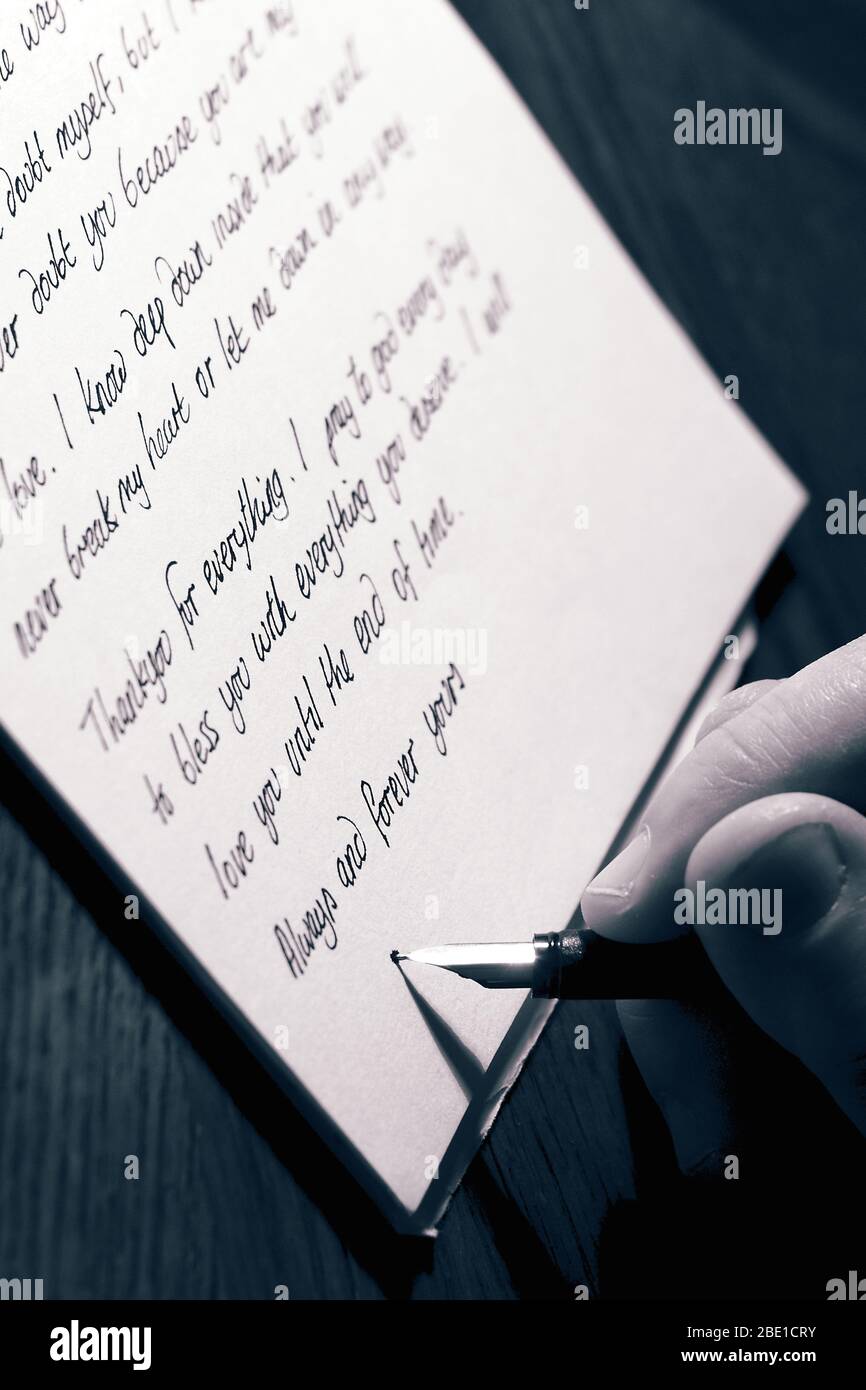 he way
doubt myself, but I
er doubt you because you are my
love. I know deep down inside that you will
never break my heart or let me down in any way
Thankyou for everything. I pray to god every day
to bless you with everything you deserve. I will
love you until the end of time.
Always and forever yours
alamy
Image ID: 2BE1CRY
www.alamy.com